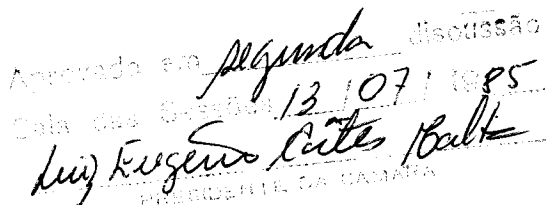 Aprovado em segunda discussão
Sala das Sessões 13 / 07 / 1985
Luiz Eugenio Cortes Malta
PRESIDENTE DA CAMARA